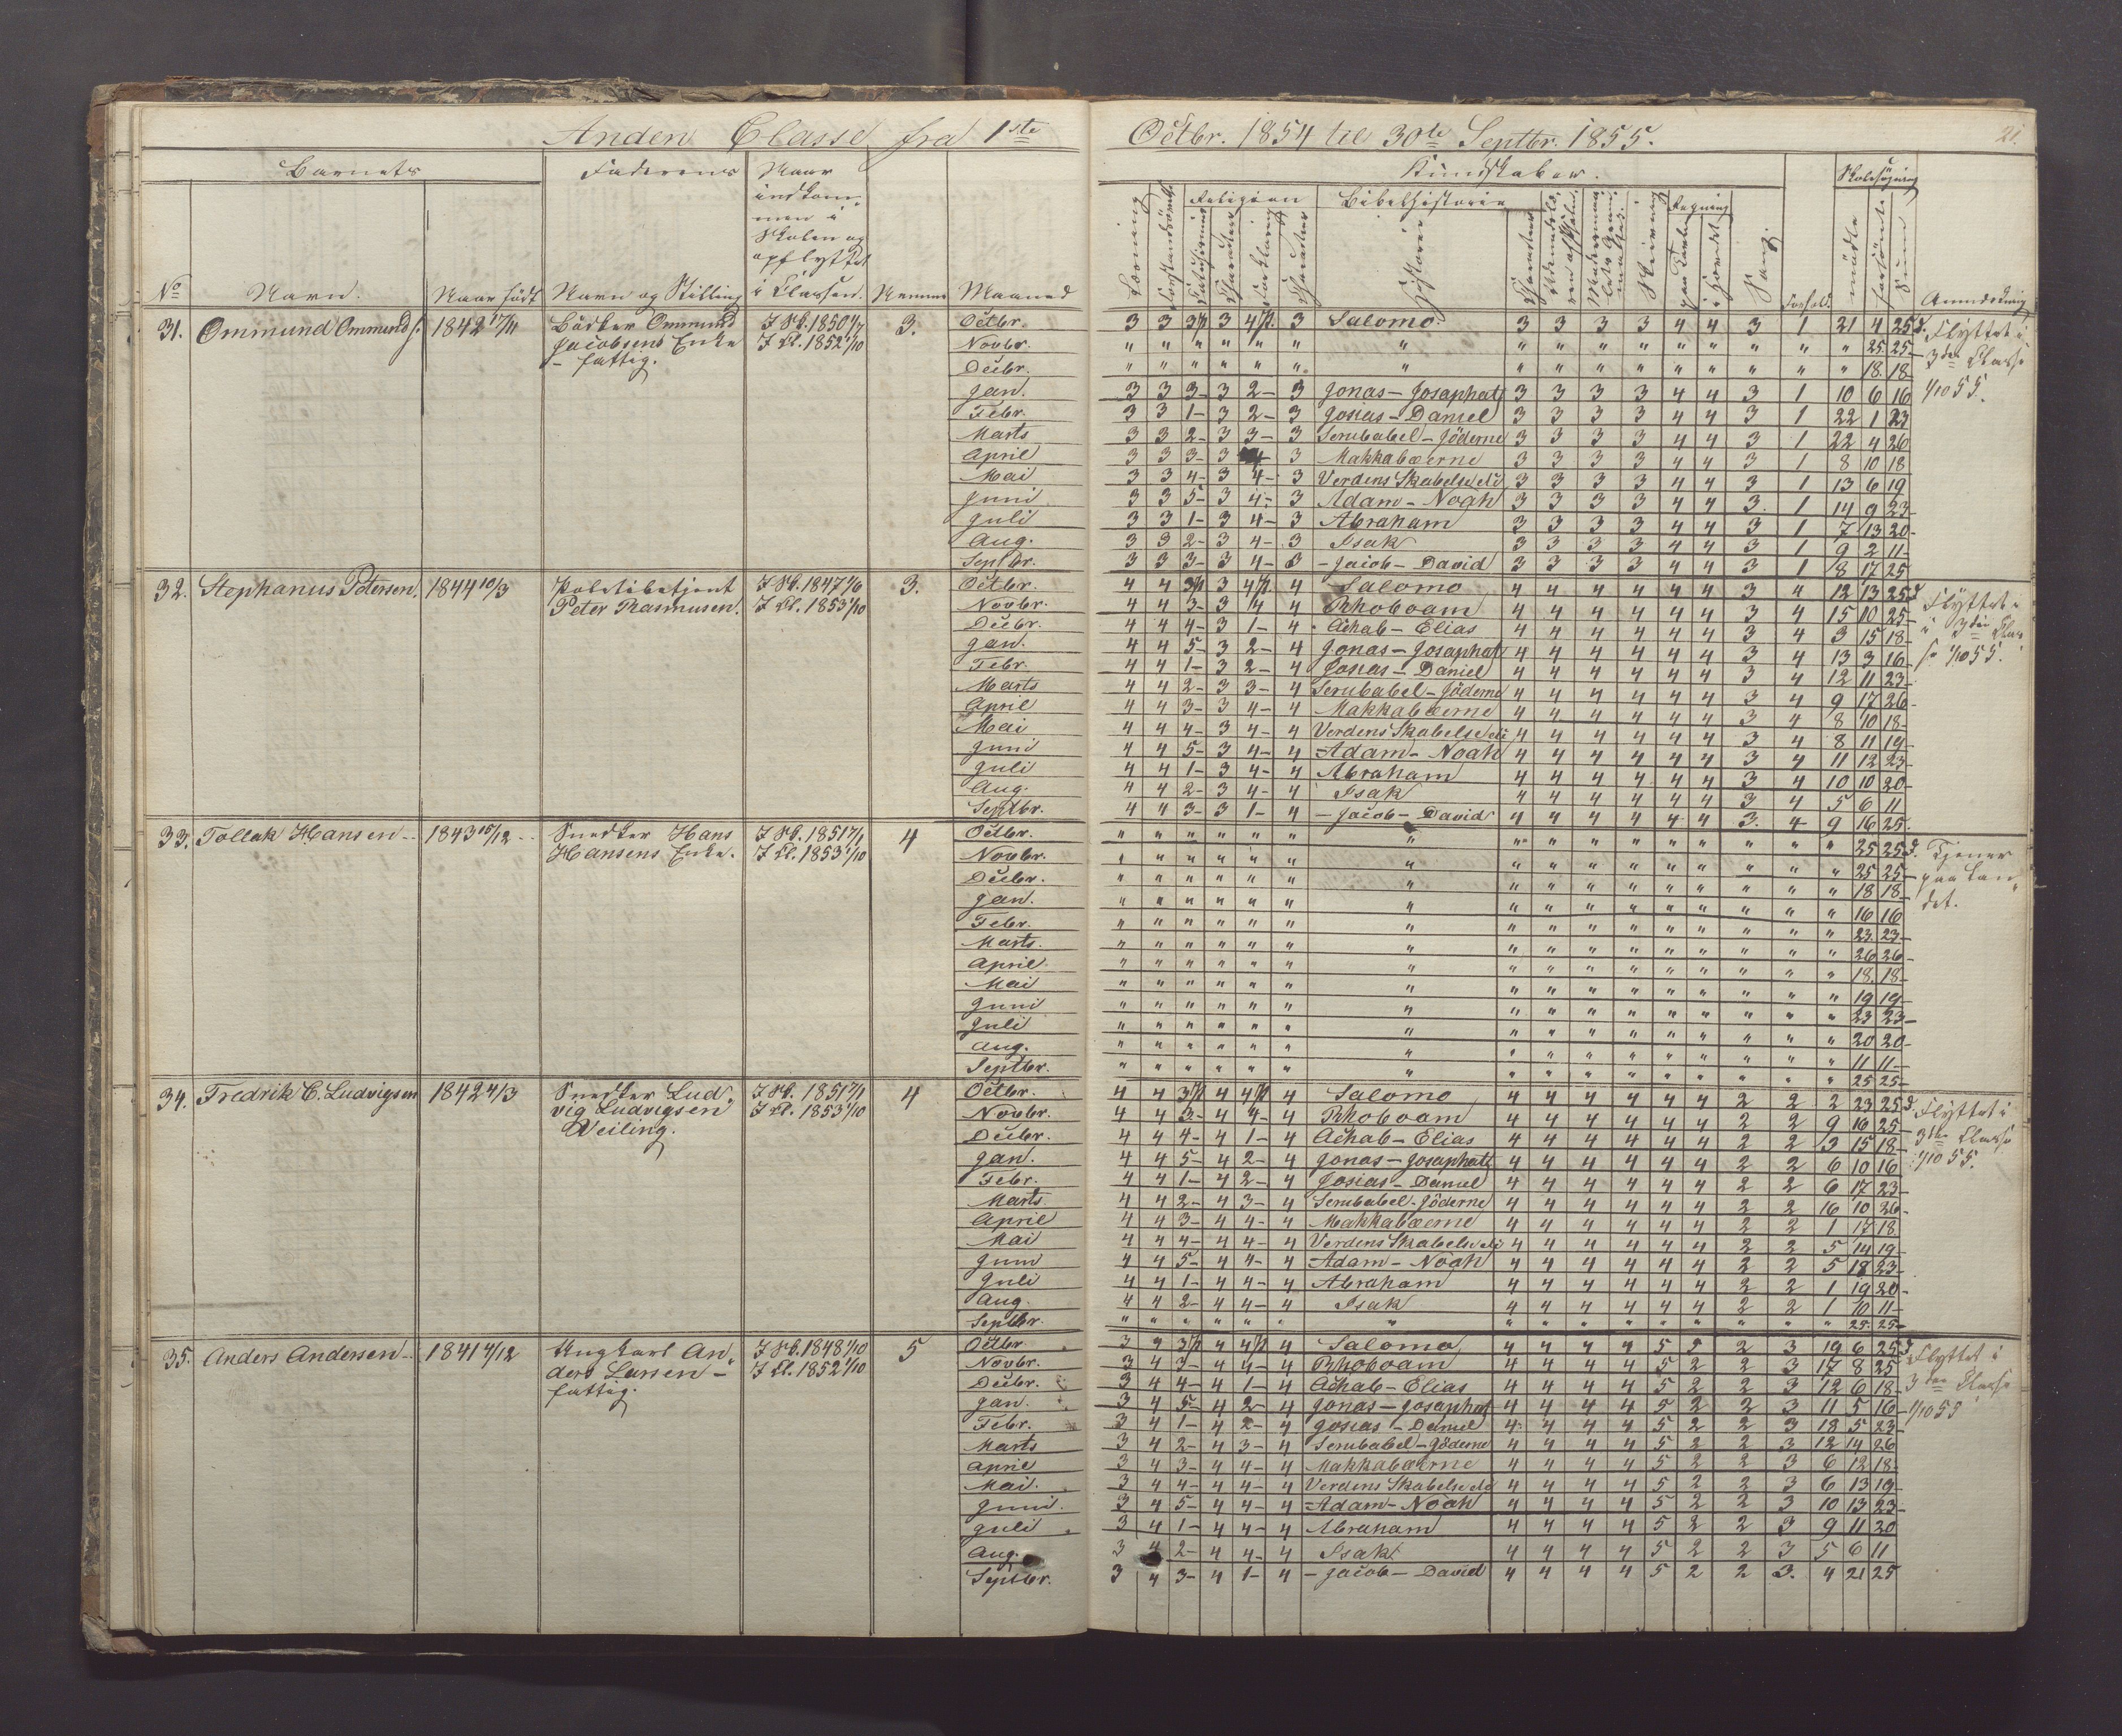 Anden Classe fra 1ste Octbr. 1854 til 30te Septbr. 1855.
21.
Barnets
Faderens
Naar indkommen i Skolen og opflyttet i Classen.
Kundskaber.
Skolesøgning
Religion
Bibelhistorie
Regning
No
Navn.
Naar født
Navn og Stilling
Nemme
Maaned
Læsning
Characteer
Forklaring
Characteer
Historie
Characteer
Skrivning
paa Tavle
i Hovedet
Sang.
Forhold
mødte
forsømte
Sum
Anmærkning
31. Ommund Ommunds. 1842 17/4 Bødker Ommund Jacobsens Enke - fattig. I Sk. 1850 1/7 I Cl. 1852 1/10 3.
Octbr. 3 3 3 3 4 3 Salomo. 3 3 3 3 4 4 3 1 21 4 25 Flyttet i
Novbr. " " " " " " " " " " " " " " " " 25 25 3die Classe
Decbr. " " " " " " " " " " " " " " " " 18 18 1/10 55.
Jan. 3 3 3 3 2 3 Jonas - Josaphat 3 3 3 3 4 4 3 1 10 6 16
Febr. 3 3 1 3 2 3 Josias - Daniel 3 3 3 3 4 4 3 1 22 1 23
Marts 3 3 2 3 3 3 Serubabel - Jöderne 3 3 3 3 4 4 3 1 22 4 26
April 3 3 3 3 4 3 Makkabæerne 3 3 3 3 4 4 3 1 8 10 18
Mai 3 3 4 3 4 3 Verdens Skabelse 3 3 3 3 4 4 3 1 13 6 19
Juni 3 3 5 3 4 3 Adam - Noah 3 3 3 3 4 4 3 1 14 9 23
Juli 3 3 1 3 4 3 Abraham 3 3 3 3 4 4 3 1 7 13 20
Aug. 3 3 2 3 4 3 Isak 3 3 3 3 4 4 3 1 9 2 11
Septbr. 3 3 3 3 4 3 - Jacob - David 3 3 3 3 4 4 3 1 8 17 25
32. Stephanus Petersen. 1844 10/3 Politibetjent Peter Rasmusen. I Sk. 1847 1/6 I Cl. 1853 1/10 3.
Octbr. 4 4 3 3 4 4 Salomo 4 4 4 4 4 4 3 4 12 13 25 Flyttet
Novbr. 4 4 3 3 4 4 Rhoboam 4 4 4 4 4 4 3 4 15 10 25 i 3die Clas
Decbr. 4 4 4 3 1 4 Achab - Elias 4 4 4 4 4 4 3 4 3 15 18 se 1/10 55.
Jan. 4 4 5 3 2 4 Jonas - Josaphat 4 4 4 4 4 4 3 4 13 3 16
Febr. 4 4 1 3 2 4 Josias - Daniel 4 4 4 4 4 4 3 4 12 11 23
Marts 4 4 2 3 3 4 Serubabel - Jöderne 4 4 4 4 4 4 3 4 9 17 26
April 4 4 3 3 4 4 Makkabæerne 4 4 4 4 4 4 3 4 8 10 18
Mai 4 4 4 3 4 4 Verdens Skabelse 4 4 4 4 4 4 3 4 8 11 19
Juni 4 4 5 3 4 4 Adam - Noah 4 4 4 4 4 4 3 4 11 12 23
Juli 4 4 1 3 4 4 Abraham 4 4 4 4 4 4 3 4 10 10 20
Aug. 4 4 2 3 4 4 Isak 4 4 4 4 4 4 3 4 5 6 11
Septbr. 4 4 3 3 1 4 - Jacob - David 4 4 4 4 4 4 3. 4 9 16 25
33. Tollak Hansen 1843 15/12 Snedker Hans Hansens Enke. I Sk. 1851 7/1 I Cl. 1853 1/10 4
Octbr. " " " " " " " " " " " " " " " " 25 25 Tjener
Novbr. " " " " " " " " " " " " " " " " 25 25 paa Lan
Decbr. " " " " " " " " " " " " " " " " 18 18 det.
Jan. " " " " " " " " " " " " " " " " 16 16
Febr. " " " " " " " " " " " " " " " " 23 23
Marts. " " " " " " " " " " " " " " " " 26 26
April. " " " " " " " " " " " " " " " " 18 18
Mai " " " " " " " " " " " " " " " " 19 19
Juni " " " " " " " " " " " " " " " " 23 23
Juli " " " " " " " " " " " " " " " " 20 20
Aug. " " " " " " " " " " " " " " " " 11 11
Septbr. " " " " " " " " " " " " " " " " 25 25
34. Fredrik C. Ludvigsen 1842 4/3 Snedker Ludvig Ludvigsen Veiling. I Sk. 1851 7/1 I Cl. 1853 1/10 4
Octbr. 4 4 3 4 4 4 Salomo 4 4 4 4 4 4 2 2 2 23 25 Flyttet i
Novbr. 4 4 3 4 4 4 Rhoboam 4 4 4 4 4 4 2 2 9 16 25 3die Classe
Decbr. 4 4 4 4 1 4 Achab - Elias 4 4 4 4 4 4 2 2 3 15 18 1/10 55.
Jan. 4 4 5 4 2 4 Jonas - Josaphat 4 4 4 4 4 4 2 2 6 10 16
Febr. 4 4 1 4 2 4 Josias - Daniel 4 4 4 4 4 4 2 2 6 17 23
Marts 4 4 2 4 3 4 Serubabel - Jöderne 4 4 4 4 4 4 2 2 16 10 26
April 4 4 3 4 4 4 Makkabæerne 4 4 4 4 4 4 2 2 1 17 18
Mai 4 4 4 4 4 4 Verdens Skabelse 4 4 4 4 4 4 2 2 5 14 19
Juni 4 4 5 4 4 4 Adam - Noah 4 4 4 4 4 4 2 2 5 18 23
Juli 4 4 1 4 4 4 Abraham 4 4 4 4 4 4 2 2 1 19 20
Aug. 4 4 2 4 4 4 Isak 4 4 4 4 4 4 2 2 1 10 11
Septbr. " " " " " " " " " " " " " " " " 25 25
35. Anders Andersen 1841 4/12 Ungkarl Anders Larsen - fattig. I Sk. 1848 1/10 I Cl. 1852 1/10 5
Octbr 3 4 3 4 4 4 Salomo 4 4 4 4 5 5 2 3 19 6 25 Flyttet i
Novbr. 3 4 3 4 4 4 Rhoboam 4 4 4 4 5 2 2 3 17 8 25 3die Classe
Decbr. 3 4 4 4 1 4 Achab - Elias 4 4 4 4 5 2 2 3 12 6 18 1/10 55
Jan. 3 4 5 4 2 4 Jonas - Josaphat 4 4 4 4 5 2 2 3 11 5 16
Febr. 3 4 1 4 2 4 Josias - Daniel 4 4 4 4 5 2 2 3 18 5 23
Marts 3 4 2 4 3 4 Serubabel - Jöderne 4 4 4 4 5 2 2 3 12 14 26
April 3 4 3 4 4 4 Makkabæerne 4 4 4 4 5 2 2 3 6 12 18
Mai. 3 4 4 4 4 4 Verdens Skabelse 4 4 4 4 5 2 2 3 6 13 19
Juni. 3 4 5 4 4 4 Adam - Noah 4 4 4 4 5 2 2 3 10 13 23
Juli 3 4 1 4 4 4 Abraham 4 4 4 4 5 2 2 3 9 11 20
Aug. 3 4 2 4 4 4 Isak 4 4 4 4 5 2 2 3 5 6 11
Septbr. 3 4 3 4 1 4 - Jacob - David 4 4 4 4 5 2 2 3. 4 21 25